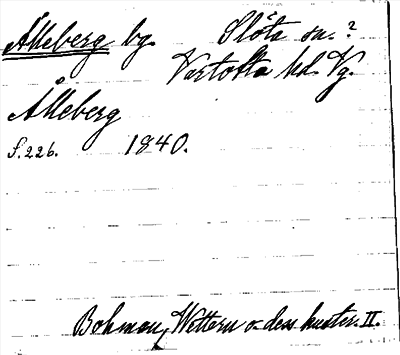 Ålleberg by. Slöta sn.?
Vartofta hd. Vg.
Ålleberg
S. 226. 1840.
Bohman, Wettern o. dess kuster. II.